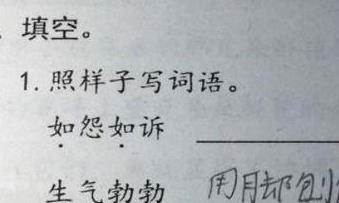 填空。
1.照样子写词语。
如怨如诉
生气勃勃